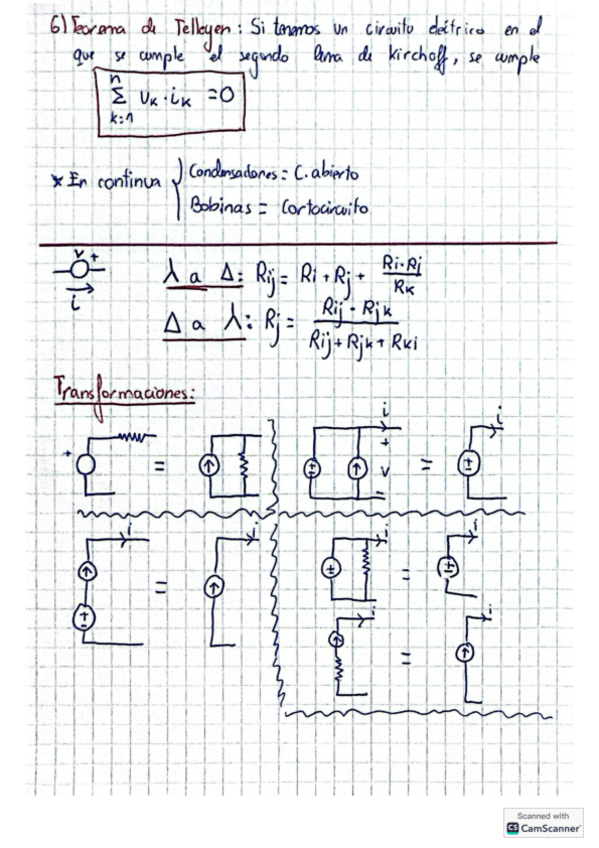 6) Teorema de Tellegen: Si tenemos un circuito eléctrico en el
que se cumple el segundo lema de Kirchoff, se cumple
n
Σ υk · ik = 0
k=1
* En continua { Condensadores = C. abierto
Bobinas = Cortocircuito
v +
i
λ a Δ: Rij = Ri + Rj + Ri·Rj / Rk
Δ a λ: Rj = Rij · Rjk / Rij + Rjk + Rki
Transformaciones:
i
+
+ = ± + v = ±
-
i
i
i
i
± = ±
i
i
=
±
=
Scanned with
CS CamScanner